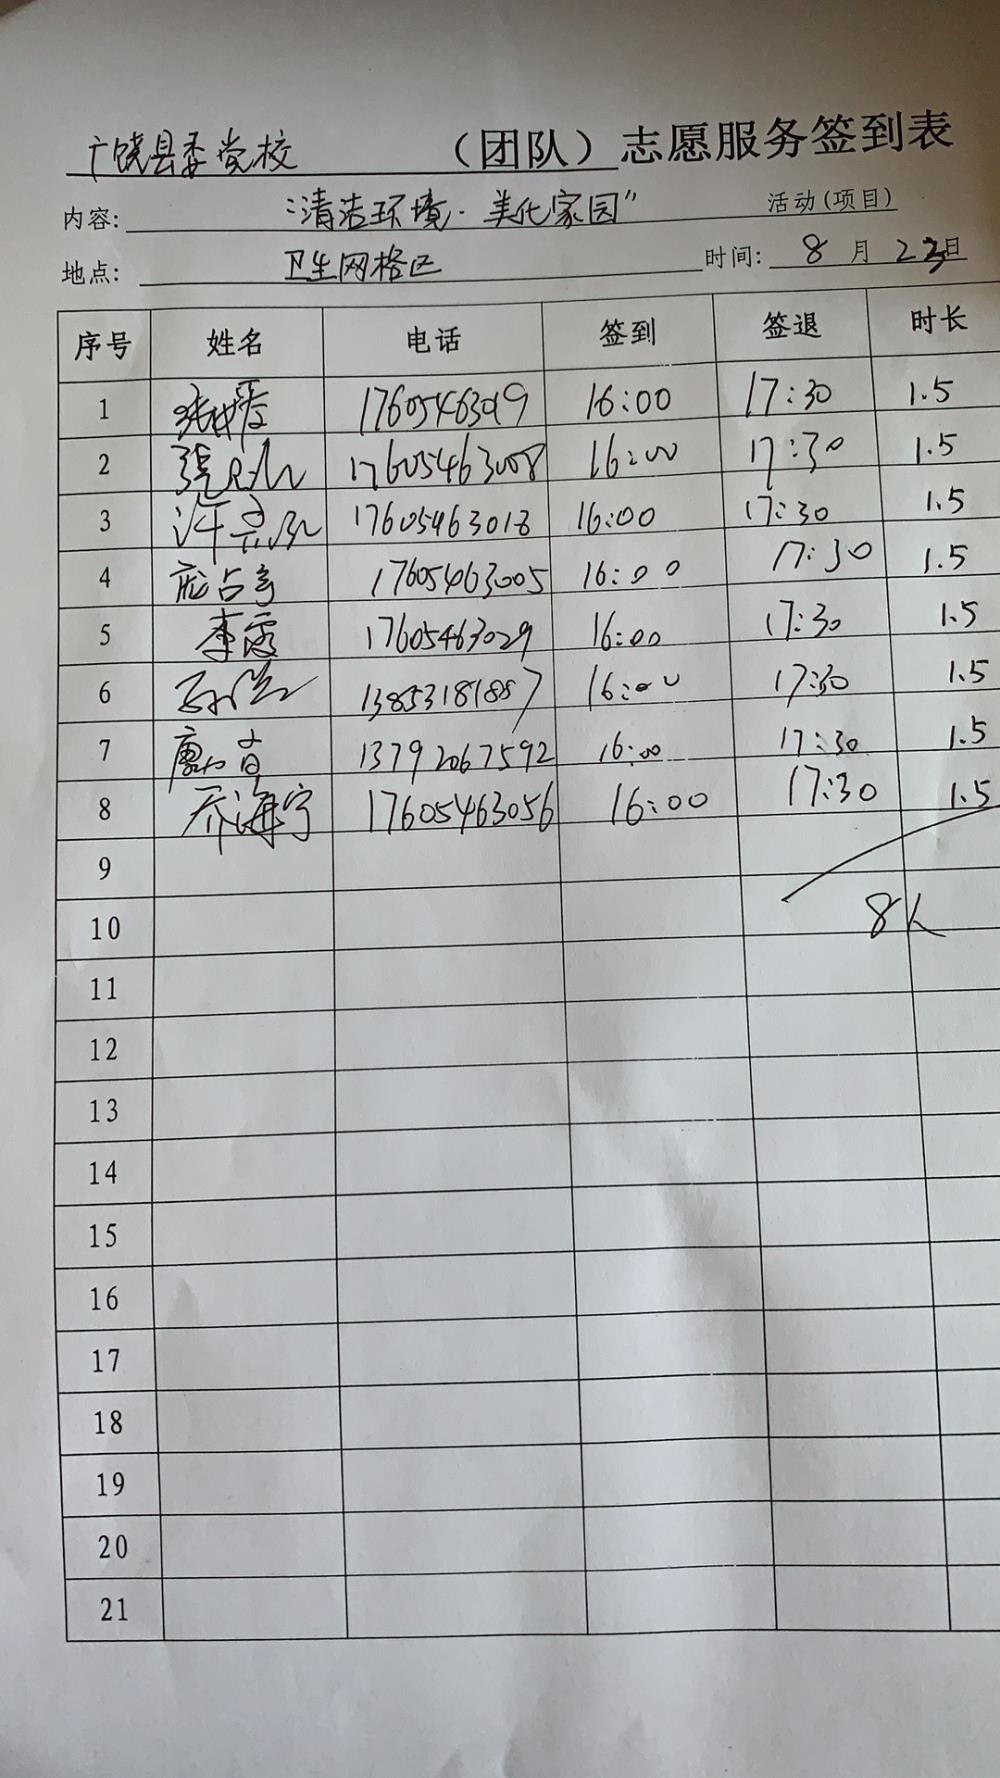 广饶县委党校（团队）志愿服务签到表
内容: "清洁环境·美化家园" 活动(项目)
地点: 卫生网格区 时间: 8月23日
序号 姓名 电话 签到 签退 时长
1 17605463019 16:00 17:30 1.5
2 17605463008 16:00 17:30 1.5
3 17605463018 16:00 17:30 1.5
4 17605463005 16:00 17:30 1.5
5 李霞 17605463029 16:00 17:30 1.5
6 13853181887 16:00 17:30 1.5
7 13792067592 16:00 17:30 1.5
8 乔海宁 17605463056 16:00 17:30 1.5
9
10 8人
11
12
13
14
15
16
17
18
19
20
21